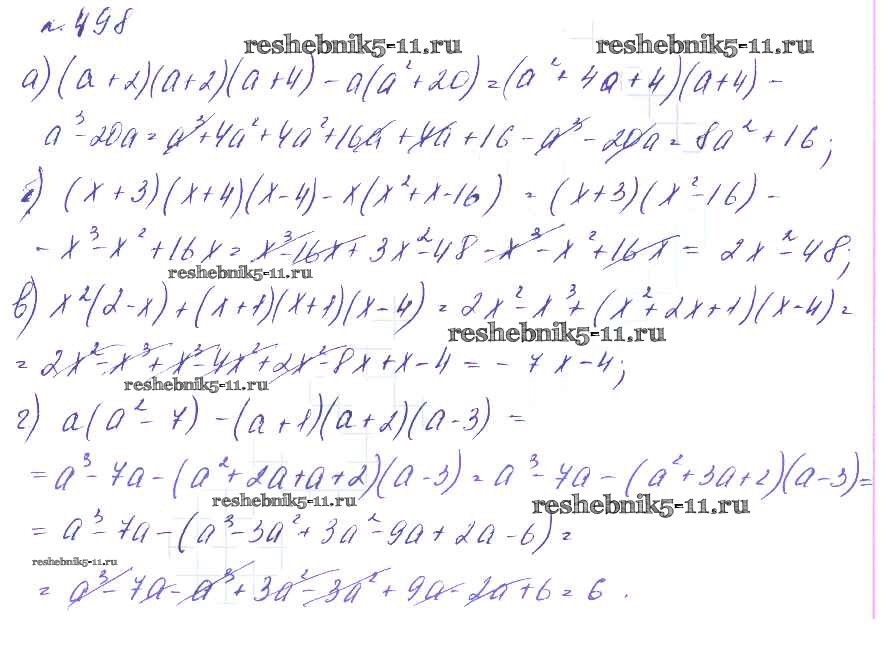 n. 498
reshebnik5-11.ru reshebnik5-11.ru
а) (a+2)(a+2)(a+4) - a(a²+20) = (a²+4a+4)(a+4) -
a³-20a = a³+4a²+4a²+16a+4a+16-a³-20a = 8a²+16;
б) (x+3)(x+4)(x-4) - x(x²+x-16) = (x+3)(x²-16) -
- x³-x²+16x = x³-16x+3x²-48-x³-x²+16x = 2x²-48;
reshebnik5-11.ru
в) x²(2-x)+(x+1)(x+1)(x-4) = 2x²-x³+(x²+2x+1)(x-4) =
reshebnik5-11.ru
= 2x²-x³+x³-4x²+2x²-8x+x-4 = -7x-4;
reshebnik5-11.ru
г) a(a²-7) - (a+1)(a+2)(a-3) =
= a³-7a-(a²+2a+a+2)(a-3) = a³-7a-(a²+3a+2)(a-3) =
reshebnik5-11.ru reshebnik5-11.ru
= a³-7a-(a³-3a²+3a²-9a+2a-6) =
reshebnik5-11.ru
= a³-7a-a³+3a²-3a²+9a-2a+6 = 6.